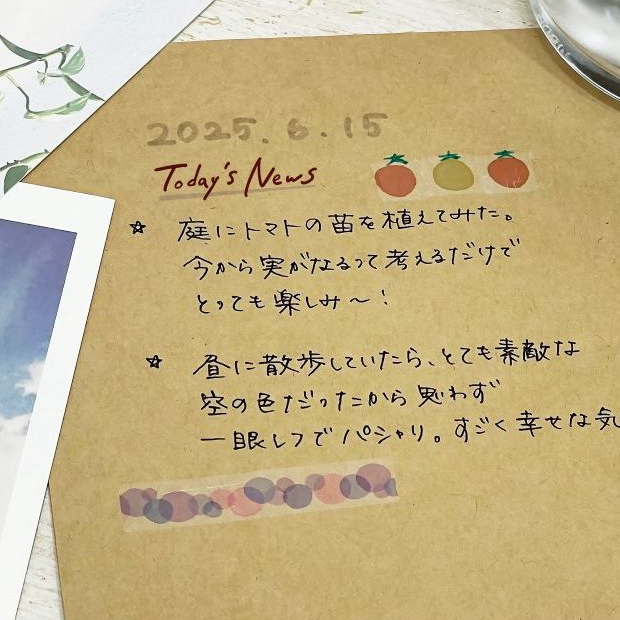 2025.6.15
Today's News
☆ 庭にトマトの苗を植えてみた。
今から実がなるって考えるだけで
とっても楽しみ〜！
☆ 昼に散歩していたら、とても素敵な
空の色だったから思わず
一眼レフでパシャリ。すごく幸せな気